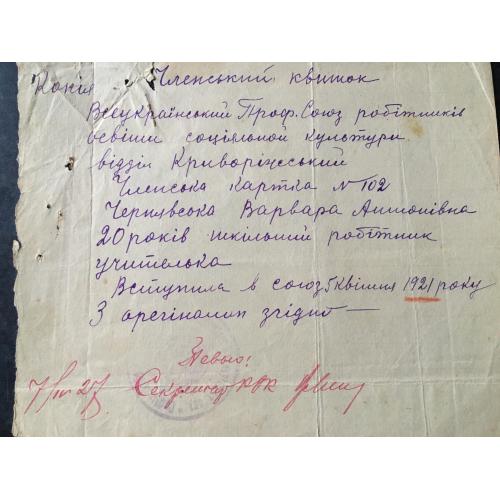 Копія Членський квиток
Всеукраїнський Проф. Союз робітників
освіти соціяльної культури
відділ Криворіжський
Членська картка № 102
Чернявська Варвара Антонівна
20 років шкільний робітник
учителька
Вступила в союз 5 квітня 1921 року
З орегіналом згідно —
Певно:
7/III 27 Секретар КРК